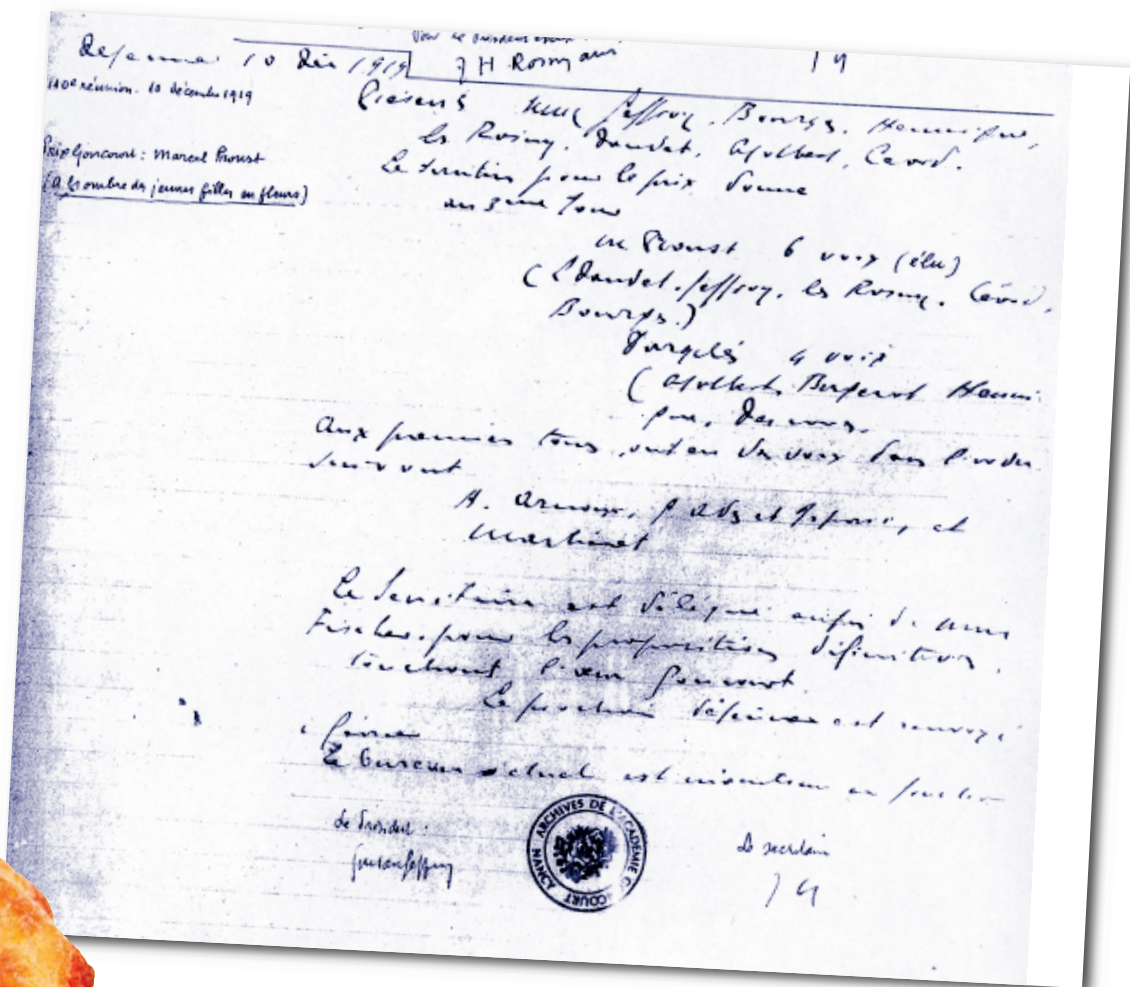 Pour le Président
J H Rosny aîné
J 4
Dejeuner 10 Déc 1919
110e réunion. 10 décembre 1919
Prix Goncourt : Marcel Proust
(A l'ombre des jeunes filles en fleurs)
Présents MM Geffroy, Bourges, Hennique,
les Rosny, Daudet, Ajalbert, Céard.
Le scrutin pour le prix donne
au 3eme Tour
M Proust 6 voix (élu)
(L Daudet, Geffroy, les Rosny, Céard,
Bourges.)
Dorgelès 4 voix
(Ajalbert, Bergerat Henni
que, Descaves.
Aux premiers tours, ont eu des voix dans l'ordre
suivant
A. et
Martinet
Le Secrétaire est délégué auprès de MM
Fischer, pour les propositions définitives
touchant Goncourt.
Le prochain déjeuner est renvoyé
février
Le bureau actuel est en fonction
Le Président
Gustave Geffroy
Le secrétaire
J 4
ARCHIVES DE L'ACADEMIE GONCOURT NANCY